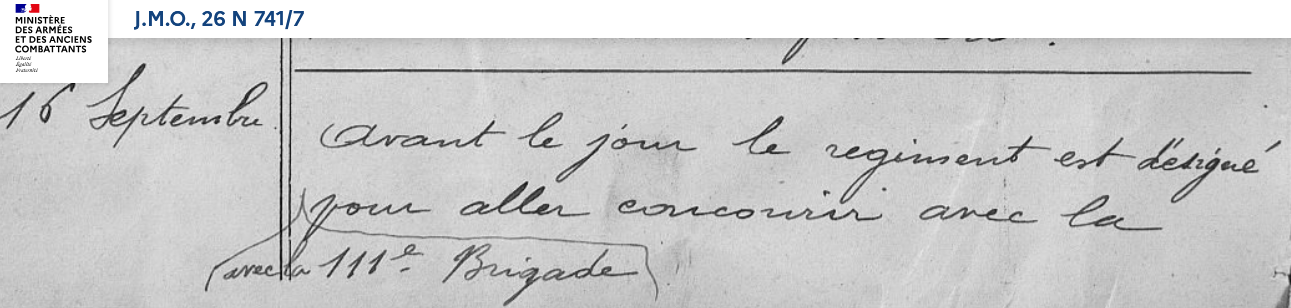 MINISTÈRE
DES ARMÉES
ET DES ANCIENS
COMBATTANTS
Liberté
Égalité
Fraternité
J.M.O., 26 N 741/7
16 Septembre
Avant le jour le regiment est désigné
pour aller concourir avec la
(avec la 111e Brigade)